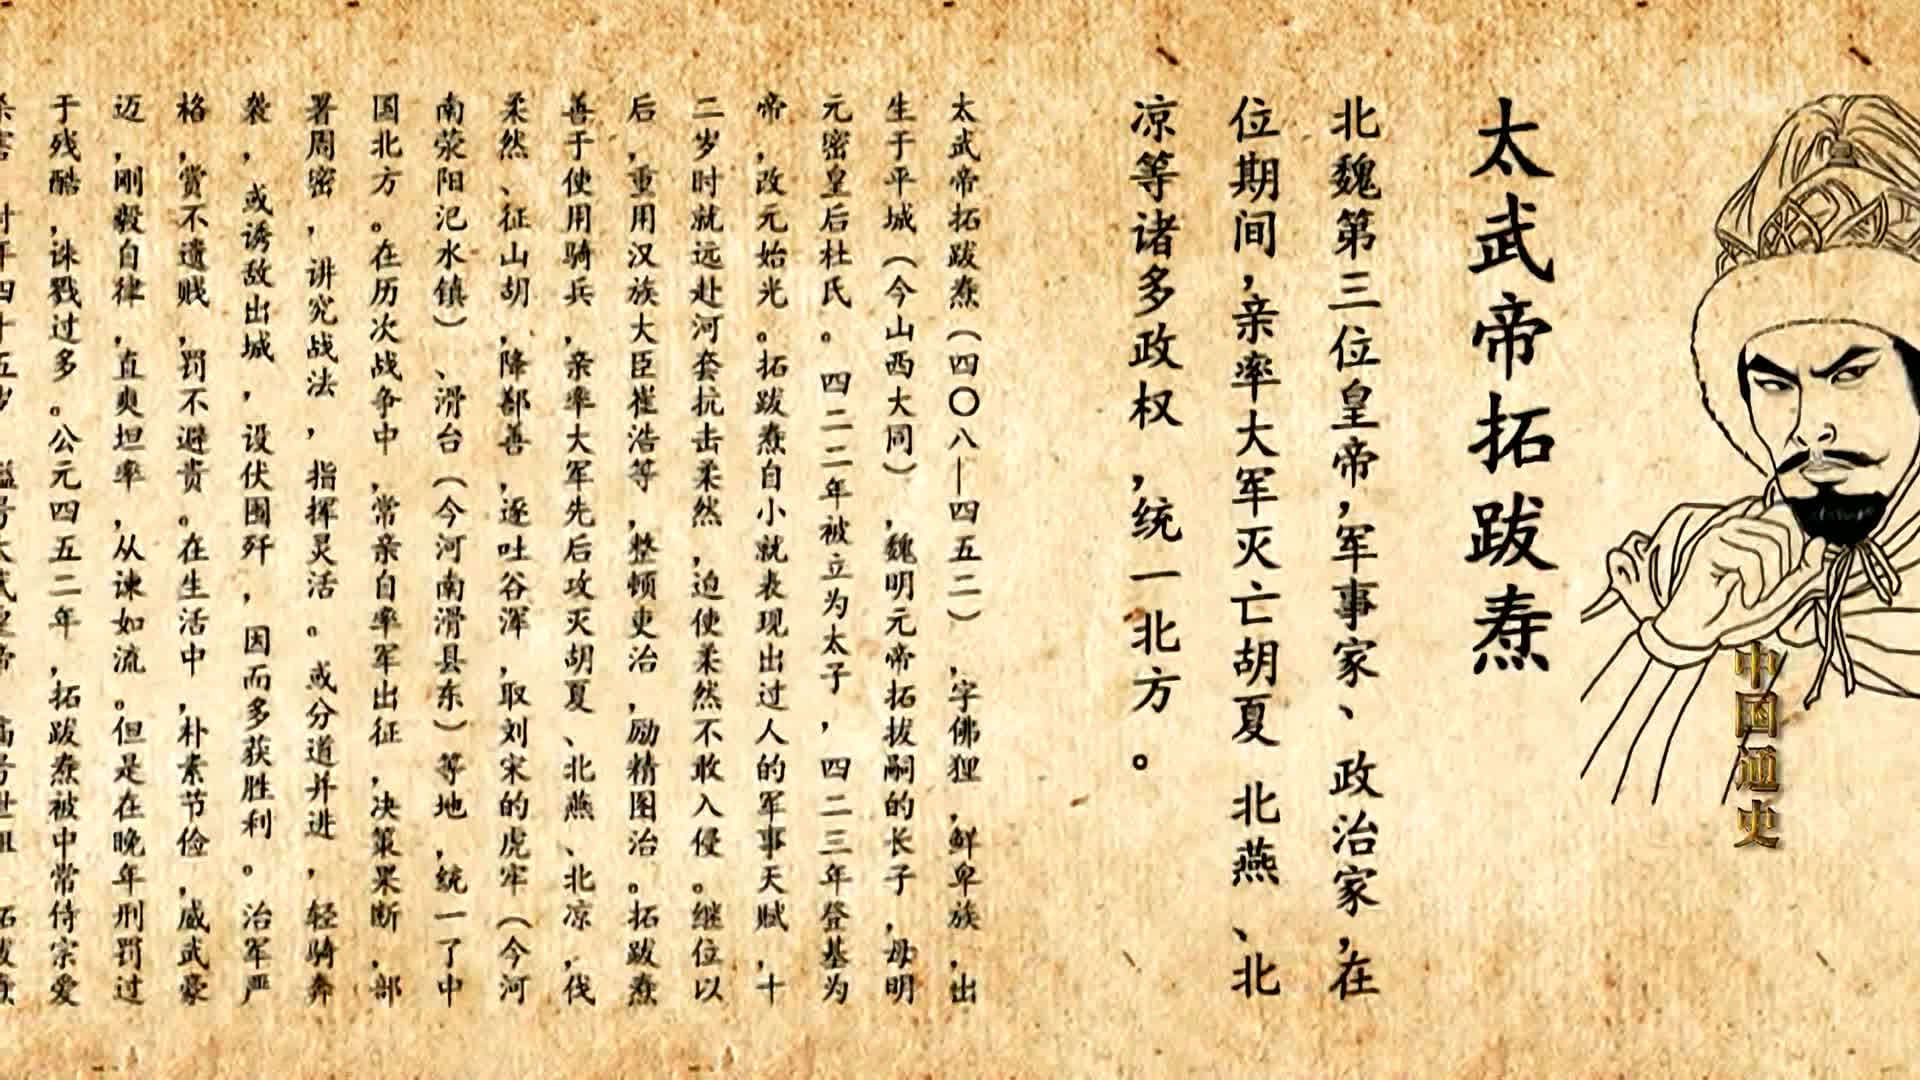 太武帝拓跋焘
北魏第三位皇帝,军事家、政治家,在
位期间,亲率大军灭亡胡夏 北燕、北
凉等诸多政权,统一北方。
太武帝拓跋焘(四〇八—四五二),字佛狸,鲜卑族,出
生于平城(今山西大同),魏明元帝拓拔嗣的长子,母明
元密皇后杜氏。四二二年被立为太子,四二三年登基为
帝,改元始光。拓跋焘自小就表现出过人的军事天赋,十
二岁时就远赴河套抗击柔然,迫使柔然不敢入侵。继位以
后,重用汉族大臣崔浩等,整顿吏治,励精图治。拓跋焘
善于使用骑兵,亲率大军先后攻灭胡夏、北燕、北凉,伐
柔然、征山胡,降鄯善,逐吐谷浑,取刘宋的虎牢(今河
南荥阳汜水镇)、滑台(今河南滑县东)等地,统一了中
国北方。在历次战争中,常亲自率军出征,决策果断,部
署周密,讲究战法,指挥灵活。或分道并进,轻骑奔
袭,或诱敌出城,设伏围歼,因而多获胜利。治军严
格,赏不遗贱,罚不避贵。在生活中,朴素节俭,威武豪
迈,刚毅自律,直爽坦率,从谏如流。但是在晚年刑罚过
于残酷,诛戮过多。公元四五二年,拓跋焘被中常侍宗爱
中国通史